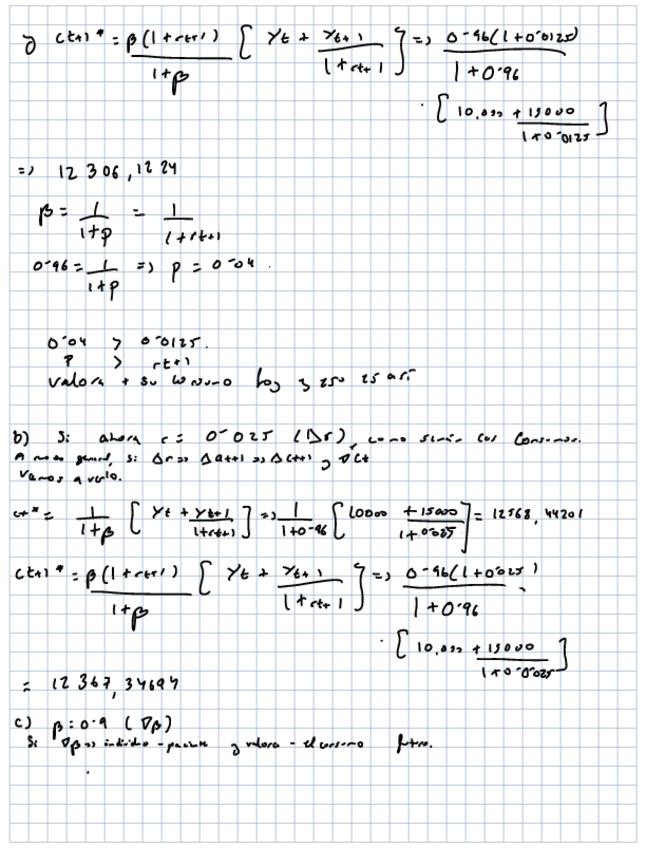 ɔ Ct+1* = β(1+rt+1) / 1+β [ Yt + Yt+1 / 1+rt+1 ] => 0'96(1+0'0125) / 1+0'96
· [ 10.000 + 15000 / 1+0'0125 ]
=> 12 306,1224
β = 1 / 1+ρ = 1 / 1+rt+1
0'96 = 1 / 1+ρ => ρ = 0'04.
0'04 > 0'0125.
ρ > rt+1
valora + su consumo hoy y eso es así
b) Si ahora r = 0'025 (Δr), como serán los Consumos.
A modo general, si Δr => Δat+1 => Δct+1 y ∇Ct
Vamos a verlo.
ct* = 1 / 1+β [ Yt + Yt+1 / 1+rt+1 ] => 1 / 1+0'96 [ 10000 + 15000 / 1+0'025 ] = 12568,44201
Ct+1* = β(1+rt+1) / 1+β [ Yt + Yt+1 / 1+rt+1 ] => 0'96(1+0'025) / 1+0'96
· [ 10.000 + 15000 / 1+0'025 ]
= 12 367,34694
c) β = 0'9 (∇β)
Si ∇β => individuo - paciente y valora - el consumo futuro.